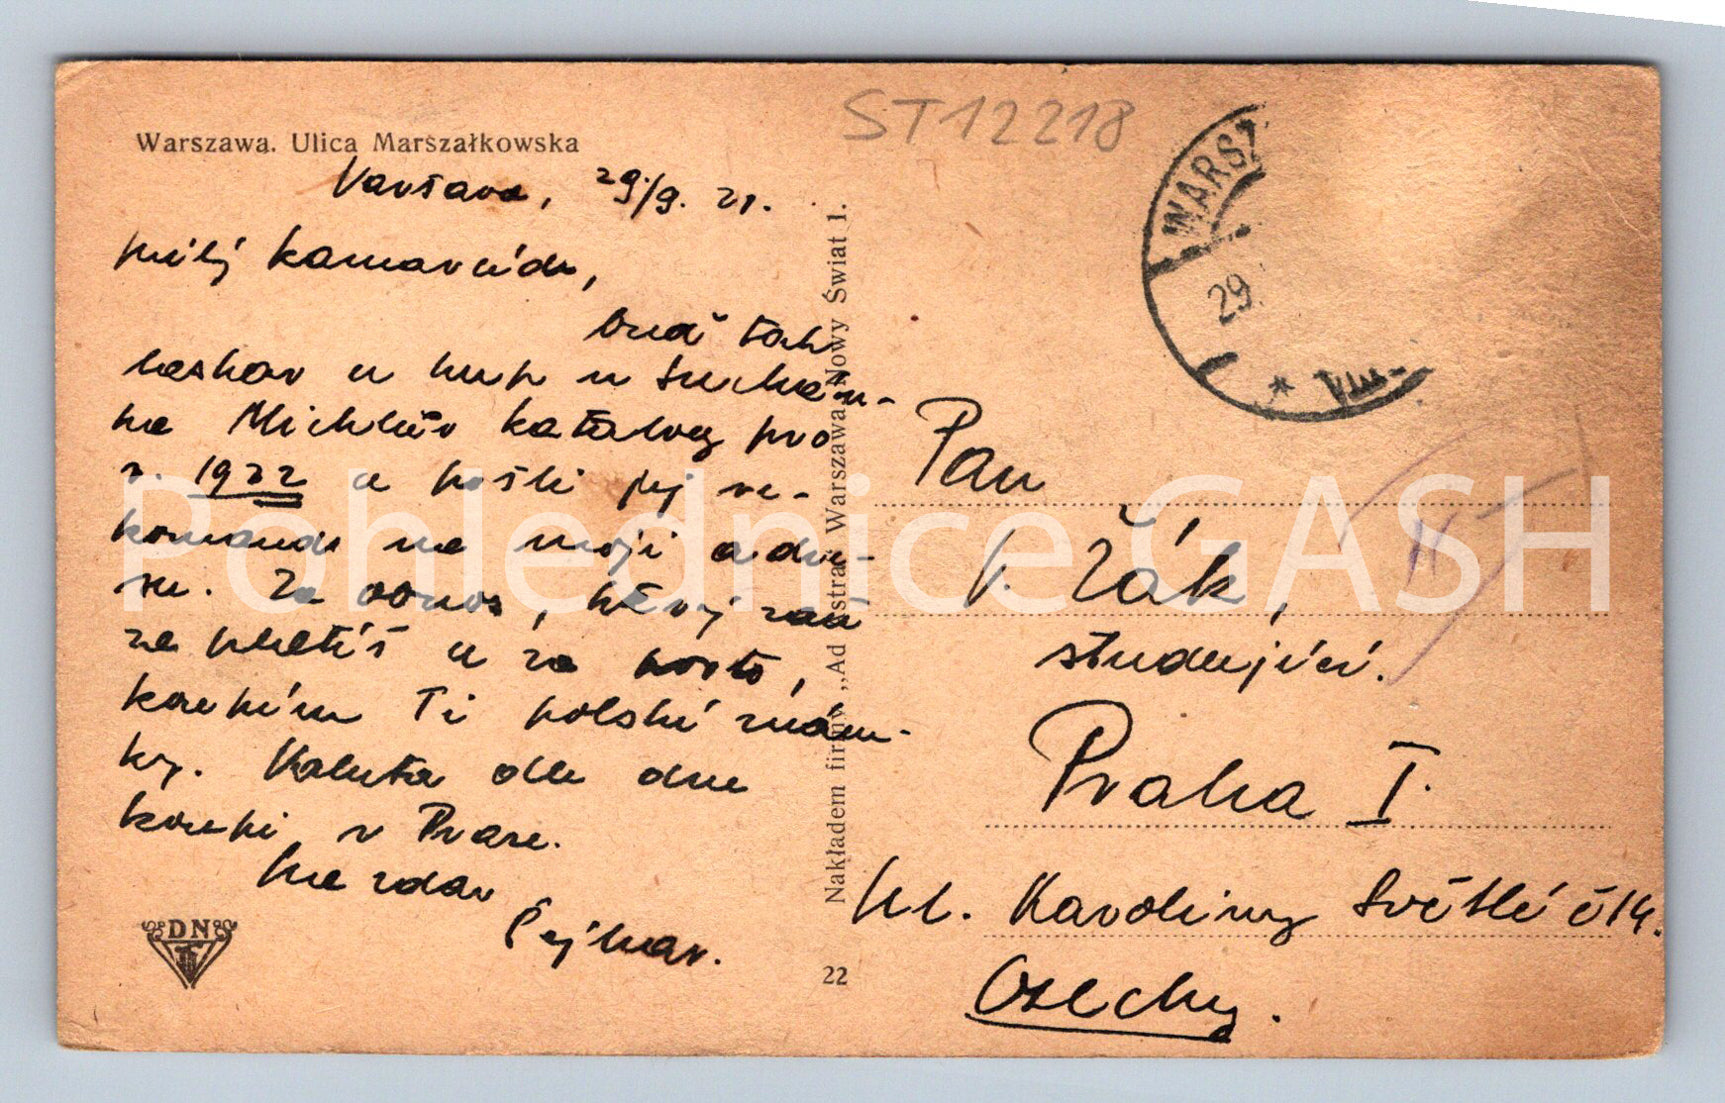 Warszawa. Ulica Marszałkowska
ST12218
Varšava, 29./9. 21.
Milý kamaráde,
buď tak
laskav a kup u
na Michlův katalog pro
r. 1922 a pošli jej re-
komando na moji adre-
su. Za obnos, který zaň
zaplatíš a za porto,
koupím Ti polské znám-
ky. Valuta dle dne
koupi v Praze.
Na zdar
Pejlmar.
DN
Nakładem firmy „Ad Astra" Warszawa Nowy Świat 1.
22
WARSZ
29.
VIII
Pan
V. Žák,
studující.
Praha I.
Ul. Karoliny Světlé č 14.
Czechy.
Pohlednice GASH